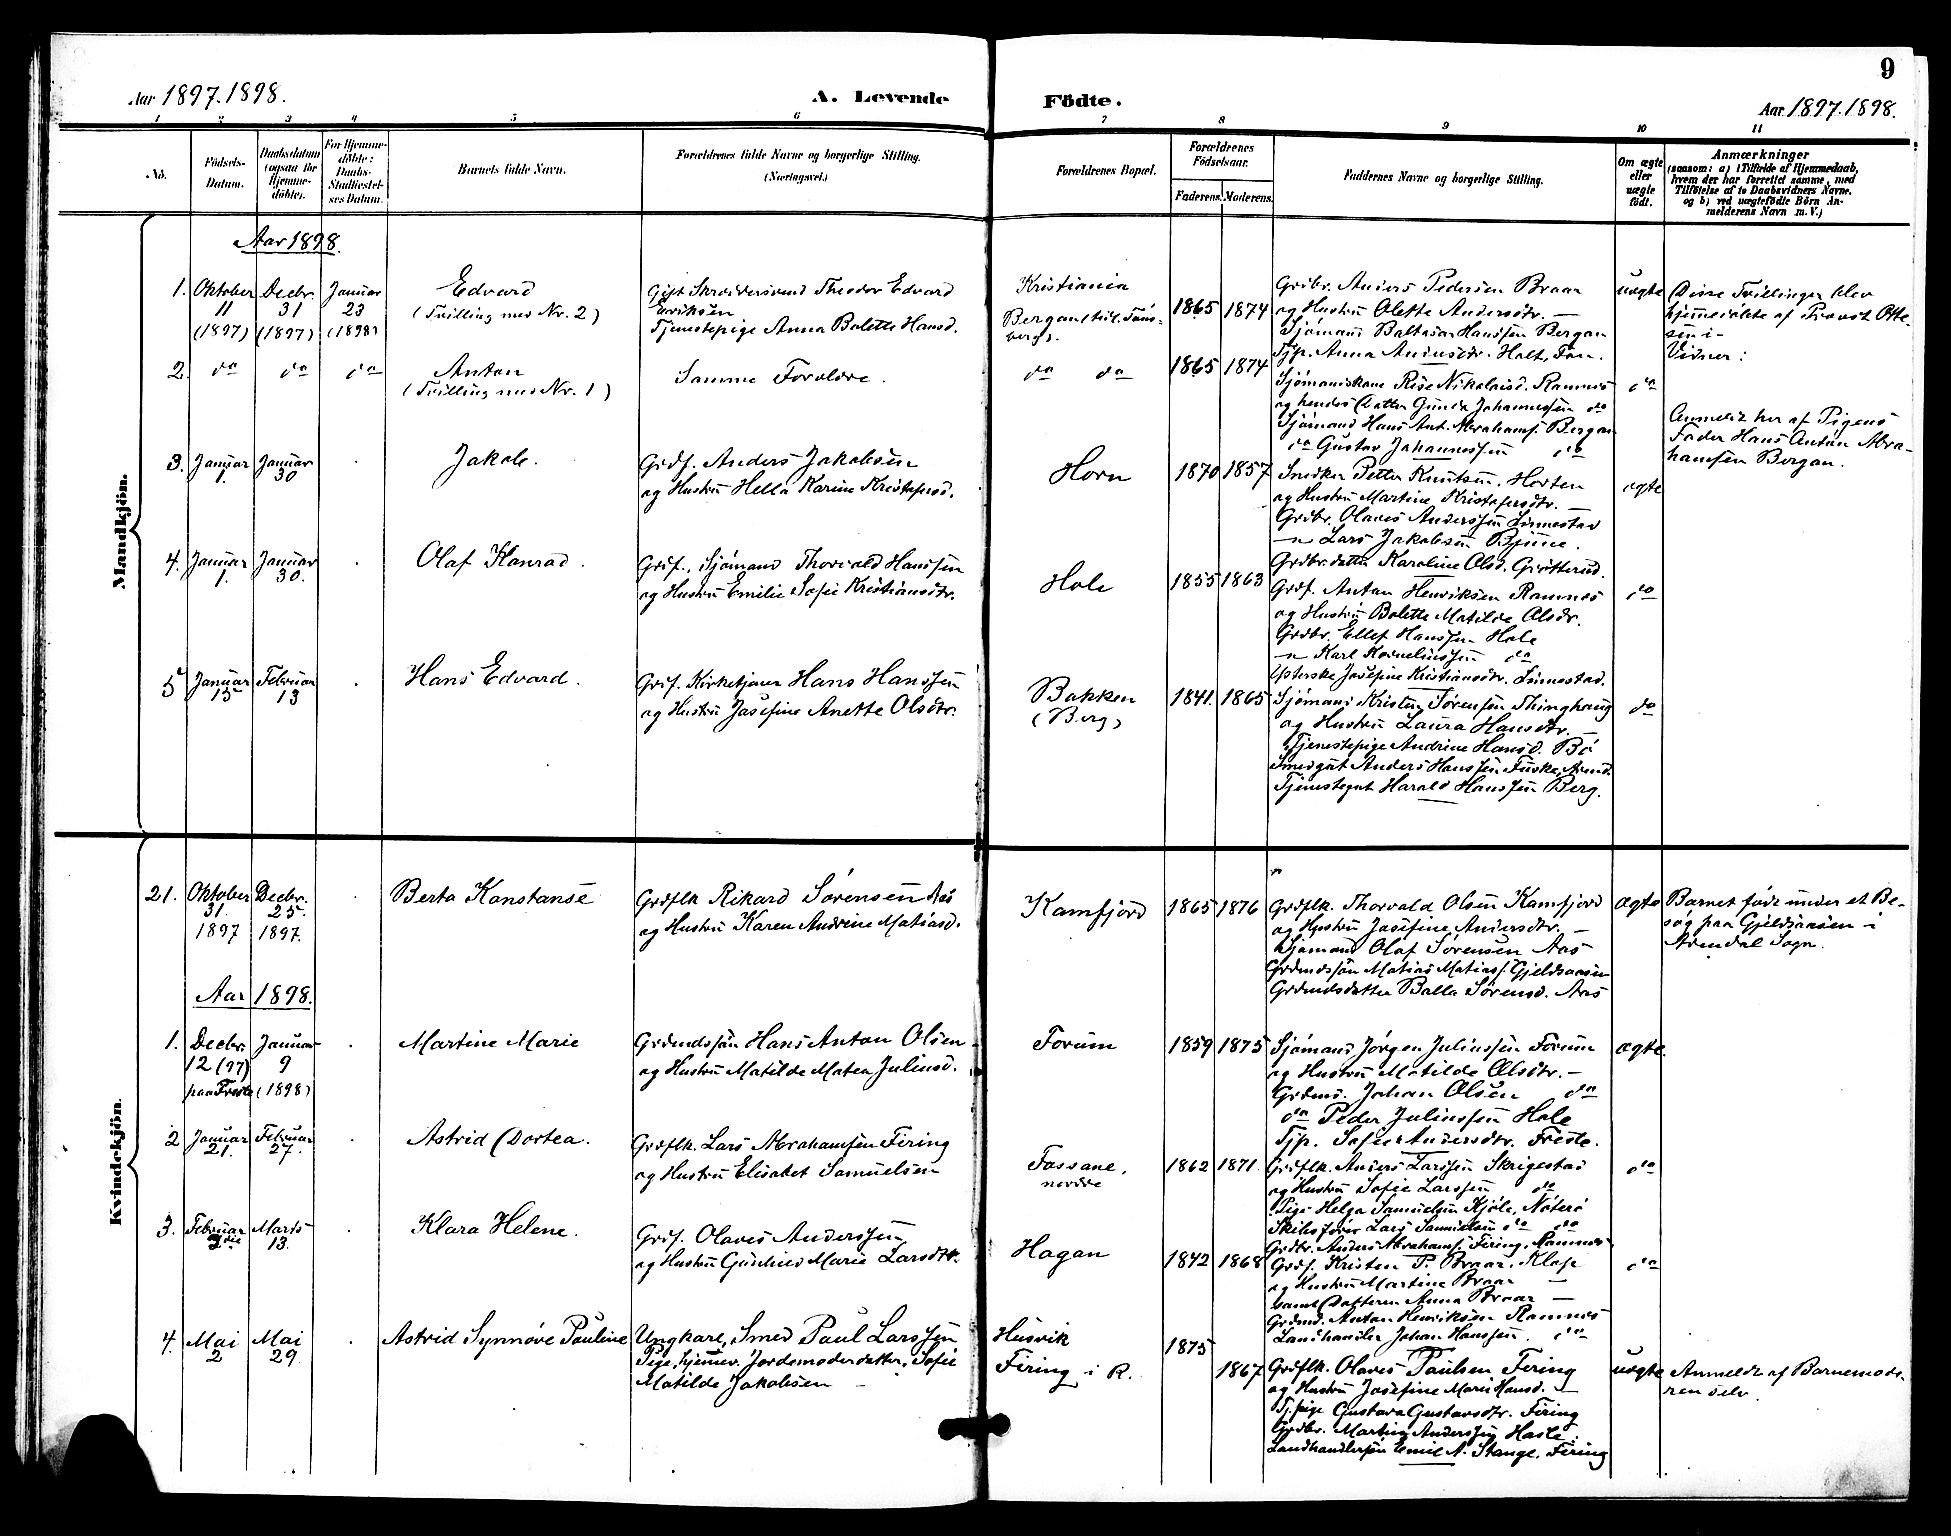 9
Aar 1897.1898.
A. Levende
Födte.
Aar 1897.1898.
1
2
3
4
5
6
7
8
9
10
11
No.
Födsels-
Datum.
Daabsdatum
(ogsaa for
Hjemme-
döbte).
For Hjemme-
döbte:
Daabs-
Stadfæstel-
ses Datum.
Barnets fulde Navn.
Forældrenes fulde Navne og borgerlige Stilling.
(Næringsvei.)
Forældrenes Bopæl.
Forældrenes
Födselsaar.
Faderens.
Moderens.
Faddernes Navne og borgerlige Stilling.
Om ægte
eller
uægte
födt.
Anmærkninger
(saasom: a) i Tilfælde af Hjemmedaab,
hvem der har forrettet samme, med
Tilföielse af to Daabsvidners Navne,
og b) ved uægtefödte Börn An-
melderens Navn m. V.)
Mandkjön.
Aar 1898.
1.
Oktober
11
(1897)
Decbr.
31
(1897)
Januar
23
(1898)
Edvard
(Tvilling med Nr. 2)
Gift Skræddersvend Theodor Edvard
Eriksen
Tjenestepige Anna Bolette Hansd.
Kristiania
Bergan (tidl. Töns-
berg).
1865
1874
Grdbr. Anders Pedersen Braar
og Hustru Olette Andersdtr. —
Sjömand Baltasar Hanssen Bergan
Tjp. Anna Andersdtr. Holt, Fon.
uægte
Disse Tvillinger blev
hjemmedöbte af Provst Otte-
sen i
Vidner:
2.
do
do
do
Anton
(Tvilling med Nr. 1)
Samme Forældre.
do do
1865
1874
Sjömandskone Rise Nikolaisd. Ramnes
og hendes Datter Gunda Johannessen do
Sjömand Hans Ant. Abrahams. Bergan
do Gustav Johannessen do
do
Anmeldt her af Pigens
Fader Hans Anton Abra-
hamsen Bergan.
3.
Januar
1.
Januar
30
Jakob.
Grdf. Anders Jakobsen
og Hustru Hella Karine Kristofersd.
Horn
1870
1857
Snedker Petter Knutsen, Horten
og Hustru Martine Kristofersdtr. —
Grdbr. Olaves Anderssen Linnestad
— Lars Jakobsen Bjune.
Grdbr.datter Karoline Olsd. Grötterud.
ægte
4.
Januar
1.
Januar
30.
Olaf Konrad.
Grdf., Sjömand Thorvald Hanssen
og Hustru Emilie Sofie Kristiansdtr.
Hole
1855
1863
Grdf. Anton Henriksen Ramnes
og Hustru Bolette Matilde Olsdr.
Grdbr. Ellef Hanssen Hole
— Karl Kornelinssen do
Ysterske Josefine Kristiansdtr. Linnestad.
do
5
Januar
15
Februar
13
Hans Edvard.
Grdf. Kirketjener Hans Hanssen
og Hustru Josefine Anette Olsdtr.
Bakken
(Berg)
1841.
1865
Sjömand Kristen Sörensen Thinghaug
og Hustru Laura Hansdtr. —
Tjenestepige Andrine Hansd. Bö
Smedgut Anders Hanssen Fuske, Arend.
Tjenestegut Harald Hanssen Berg.
do
Kvindekjön.
21.
Oktober
31.
1897
Decbr.
25.
1897.
Berta Konstanse
Grdflk. Rikard Sörensen Aas
og Hustru Karen Andrine Matiasd.
Kamfjord
1865
1876
Grdflk. Thorvald Olsen Kamfjord
og Hustru Josefine Andersdtr. —
Sjömand Olaf Sörensen Aas
Grdmdssön Matias Matiass. Gjeldsaasen
Grdmdsdatter Balla Sörensd. Aas
ægte
Barnet födt under et Be-
sög paa Gjeldsaasen i
Arendal Sogn.
Aar 1898.
1.
Decbr.
12 (97)
paa Freste
Januar
9
(1898)
Martine Marie
Grdmdssön Hans Anton Olsen
og Hustru Matilde Matea Juliusd.
Forum
1859
1875
Sjömand Jörgen Juliussen Forum
og Hustru Matilde Olsdtr. —
Grdmds. Johan Olsen do
do Peder Juliussen Hole
Tjp. Sofie Andersdtr. Freste.
ægte.
2
Januar
21.
Februar
27.
Astrid Dortea.
Grdflk. Lars Abrahamsen Firing
og Hustru Elisabet Samuelsen
Fossane,
nordre
1862
1871.
Grdflk. Anders Larssen Skrigestad
og Hustru Sofie Larssen do
Pige Helga Samuelsen Kjöle, Nöterö
Skibsförer Lars Samuelsen do do
Grdbr. Anders Abrahams. Firing, Ramnes
do
3.
Februar
2die
Marts
13.
Klara Helene.
Grdf. Olaves Anderssen
og Hustru Gunhild Marie Larsdtr.
Hagan
1842
1868
Grdf. Kristen P. Braar, Klop
og Hustru Martine Braar —
samt Datteren Anna Braar —
Grdmd. Anton Henriksen Ramnes
Landhandler Johan Hanssen. do
do
4.
Mai
2
Mai
29.
Astrid Synnöve Pauline
Ungkarl, Smed Paul Larssen
Pige, hjemmev. Jordemoderdatter, Sofie
Matilde Jakobsen —
Husvik
Firing i R.
1875
1867
Grdflk. Olaves Paulsen Firing
og Hustru Josefine Marie Hansd. —
Tj.pige Gustava Gustavsdtr. Firing
Grdbr. Martin Anderssen Hasle.
Landhandlersön Emil A. Stange, Firing
uægte
Anmeldt af Barnemode-
ren selv.